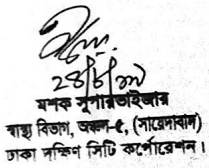 ২৪/৮/২০
মশক সুপারভাইজার
স্বাস্থ্য বিভাগ, অঞ্চল-৫, (সায়েদাবাদ)
ঢাকা দক্ষিণ সিটি কর্পোরেশন।